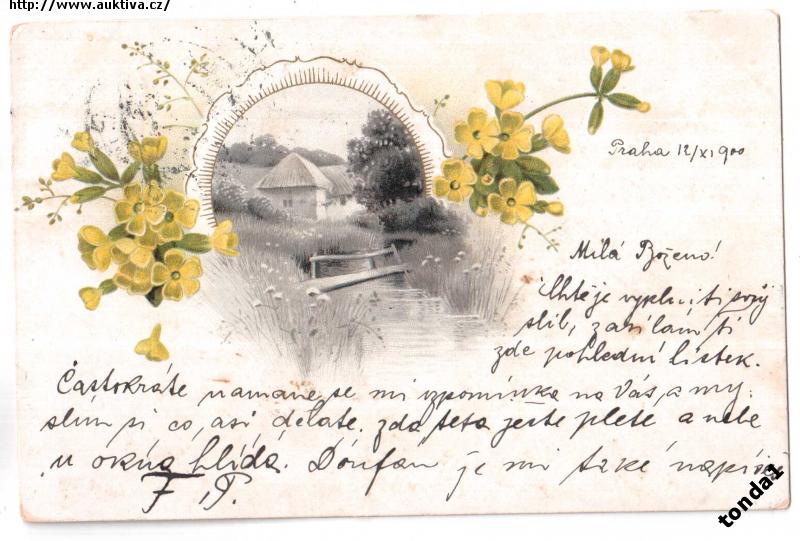 http://www.auktiva.cz/
Praha 12/XI 900
Milá Boženo!
Chtěje vyplniti svůj
slib, zasílám ti
zde pohlední lístek.
Častokráte namane se mi vzpomínka na Vás, a my:
slím si co, asi děláte. zda teta ještě plete a nebo
u okna hlídá. Doufám je mi také napíše
F. P.
tonda1